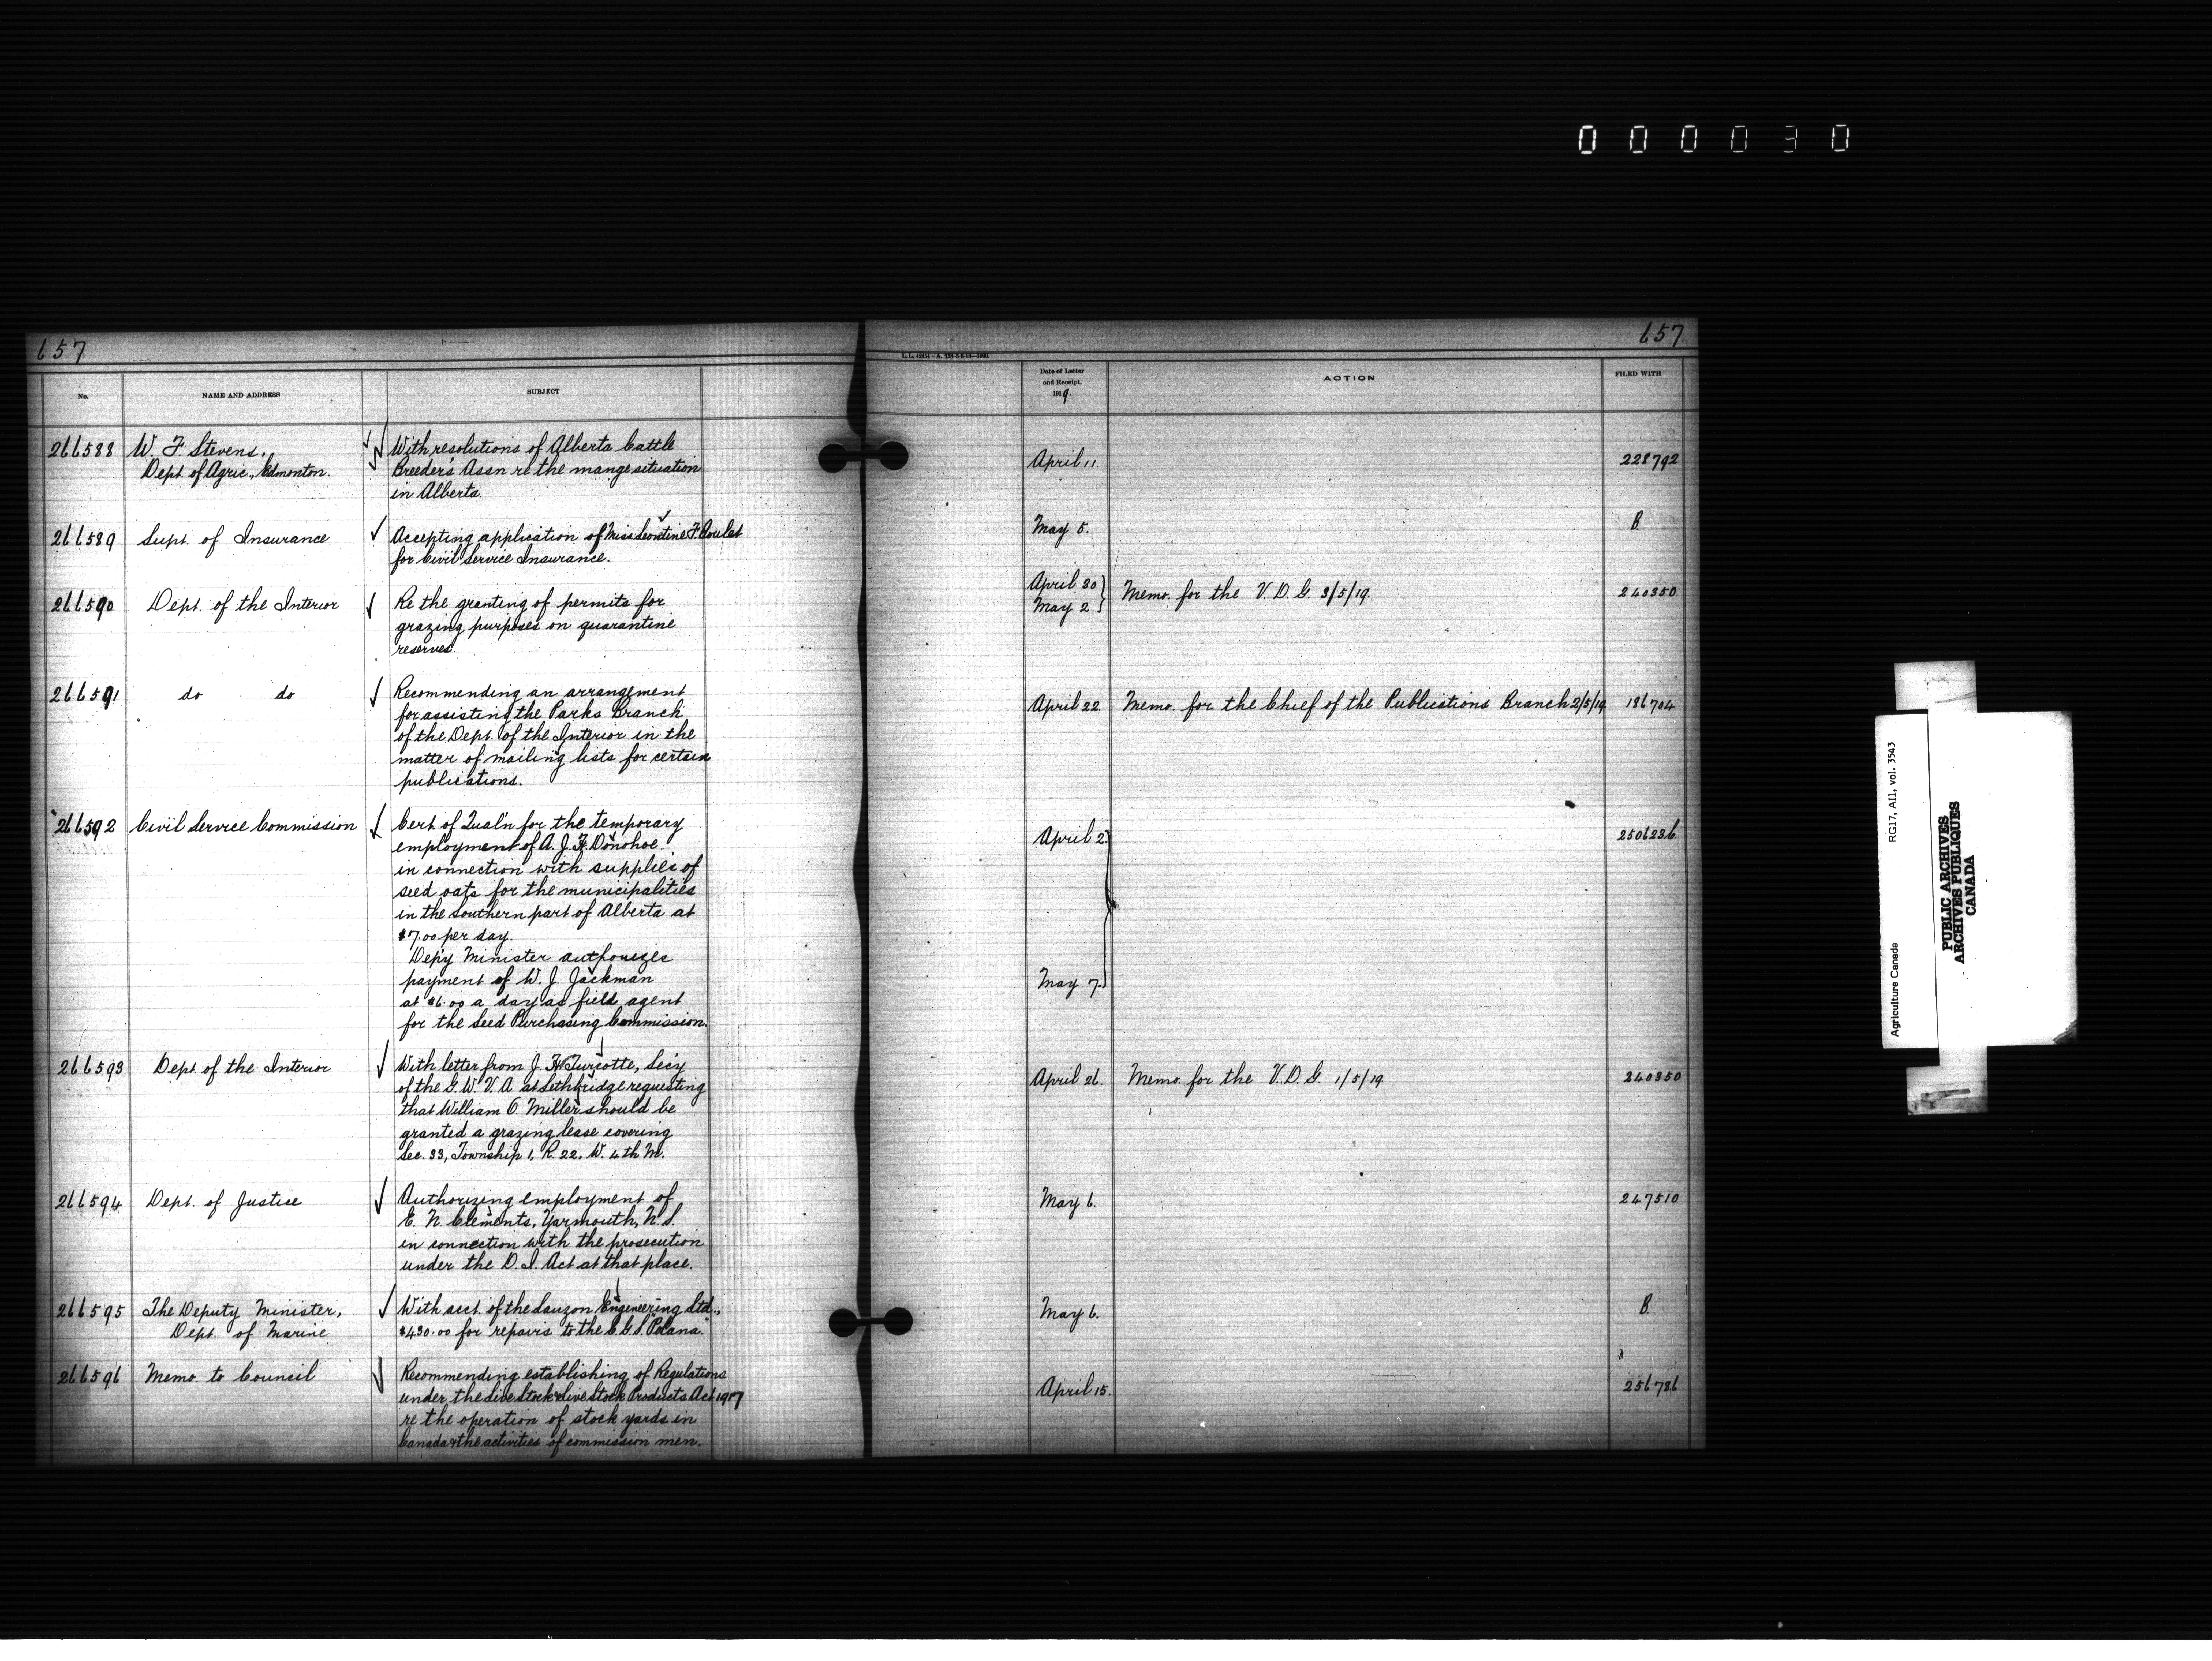 000030
657
No.
NAME AND ADDRESS
SUBJECT
266588
W. F. Stevens,
Dept of Agric., Edmonton.
With resolutions of Alberta Cattle
Breeder's Assn re the mange situation
in Alberta.
266589
Supt. of Insurance
Accepting application of Miss Leontine F. Goulet
for Civil Service Insurance.
266590
Dept. of the Interior
Re the granting of permits for
grazing purposes on quarantine
reserves.
266591
do do
Recommending an arrangement
for assisting the Parks Branch
of the Dept. of the Interior in the
matter of mailing lists for certain
publications.
266592
Civil Service Commission
Cert of Qual'n for the temporary
employment of A. J. F. Donohoe
in connection with supplies of
seed oats for the municipalities
in the southern part of Alberta at
$7.00 per day.
Dep'y Minister authorizes
payment of W. J. Jackman
at $6.00 a day as field agent
for the Seed Purchasing Commission.
266593
Dept. of the Interior
With letter from J. H. Turcotte, Sec'y
of the G. W. V. A. at Lethbridge requesting
that William O. Miller should be
granted a grazing lease covering
Sec. 33, Township 1, R. 22, W. 4th M.
266594
Dept. of Justice
Authorizing employment of
E. N. Clements, Yarmouth, N. S.
in connection with the prosecution
under the D. I. Act at that place.
266595
The Deputy Minister,
Dept. of Marine
With acct. of the Lauzon Engineering Ltd.,
$430.00 for repairs to the C. G. S. "Polana."
266596
Memo. to Council
Recommending establishing of Regulations
under the Live Stock & Live Stock Products Act 1917
re the operation of stock yards in
Canada & the activities of commission men.
657
Date of Letter
and Receipt.
1919.
ACTION
FILED WITH
April 11.
228792
May 5.
B.
April 30
May 2
Memo. for the V. D. G. 3/5/19.
240350
April 22
Memo. for the Chief of the Publications Branch 2/5/19
186704
April 2.
2506236
May 7.
April 26.
Memo. for the V. D. G. 1/5/19
240350
May 6.
247510
May 6.
B.
April 15.
256786
Agriculture Canada
RG17, AII, vol. 3543
PUBLIC ARCHIVES
ARCHIVES PUBLIQUES
CANADA